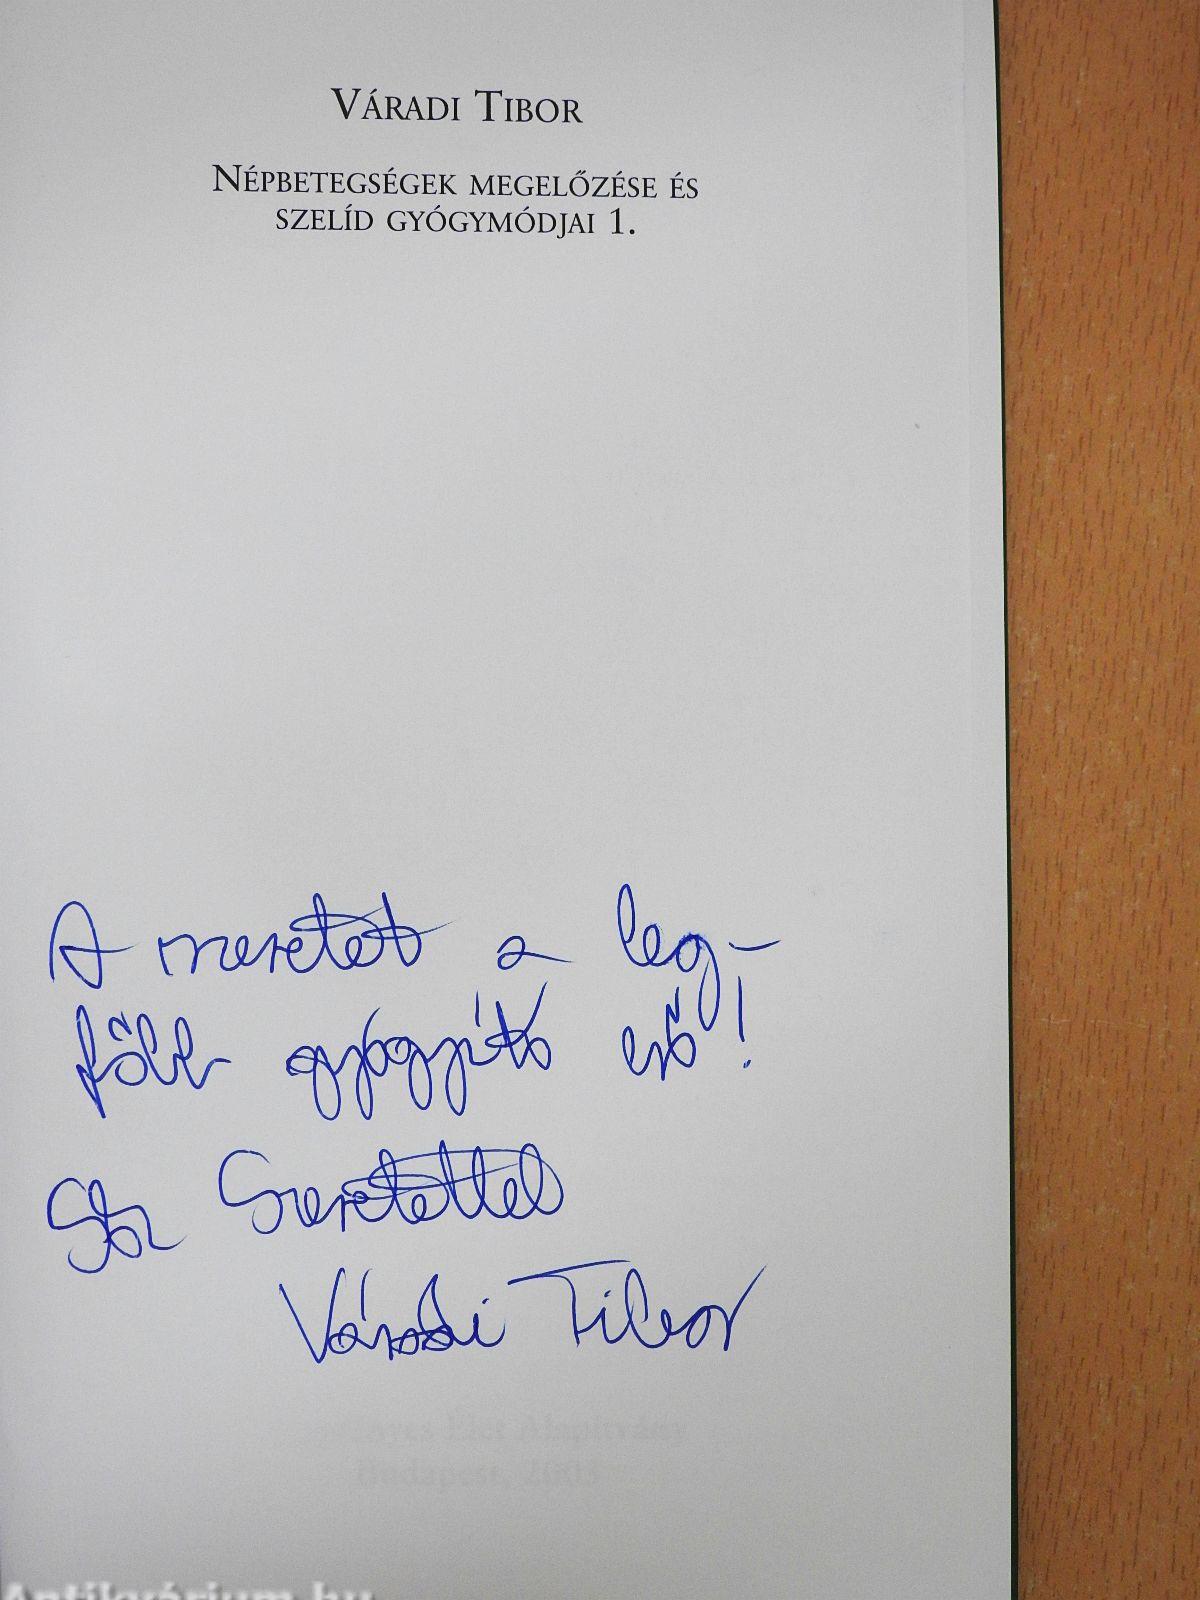 VÁRADI TIBOR
NÉPBETEGSÉGEK MEGELŐZÉSE ÉS
SZELÍD GYÓGYMÓDJAI 1.
A szeretet a leg-
főbb gyógyító erő!
Szeretettel
Váradi Tibor
Élet Alapítvány
Budapest, 2003
Antikvárium.hu